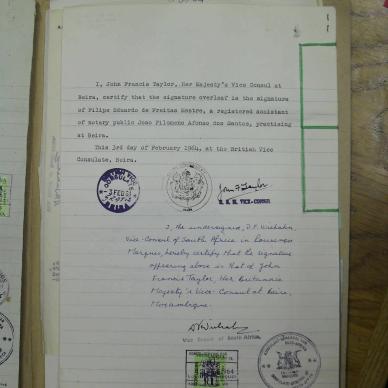 I, John Francis Taylor, Her Majesty's Vice Consul at
Beira, certify that the signature overleaf is the signature
of Filipe Eduardo de Freitas Mestre, a registered assistant
of notary public Joao Filomeno Afonso dos Santos, practising
at Beira.
This 3rd day of February 1964, at the British Vice
Consulate, Beira.
3 FEB 64
John F Taylor
H. B. M. VICE-CONSUL
I, the undersigned, D.F.
Vice-Consul of South Africa in Lourenco
Marques, hereby certify that the signature
appearing above is that of John
Francis Taylor, Her Britannic
Majesty's Vice-Consul at Beira,
Mozambique.
Vice Consul of South Africa.
1964